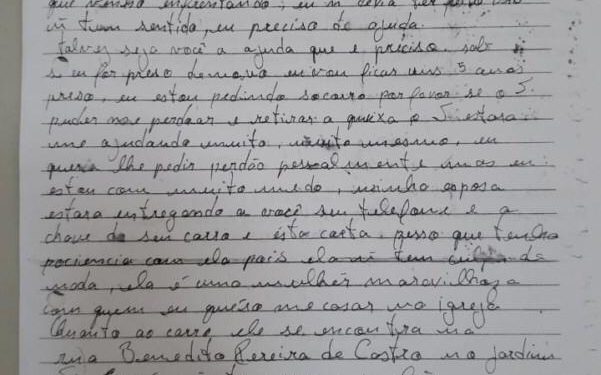 que venho enfrentando, eu ñ devia ter feito isso
ñ tem sentido, eu preciso de ajuda.
Talvez seja você a ajuda que e preciso. sabe
s eu for preso demova eu vou ficar uns 5 anos
preso, eu estou pedindo socorro por favor se o S.
puder me perdoar e retirar a queixa o S. estara
me ajudando muito, muito mesmo, eu
queria lhe pedir perdão pessoalmente mas eu
estou com muito medo, minha esposa
estara entregando a você seu telefone e a
chave do seu carro e esta carta. pesso que tenha
paciencia com ela pois ela ñ tem culpa de
nada, ela é uma mulher maravilhosa
com quem eu quéso me casar na igreja
Quanto ao carro, ele se encontra na
rua Benedito Pereira de Castro no jardim